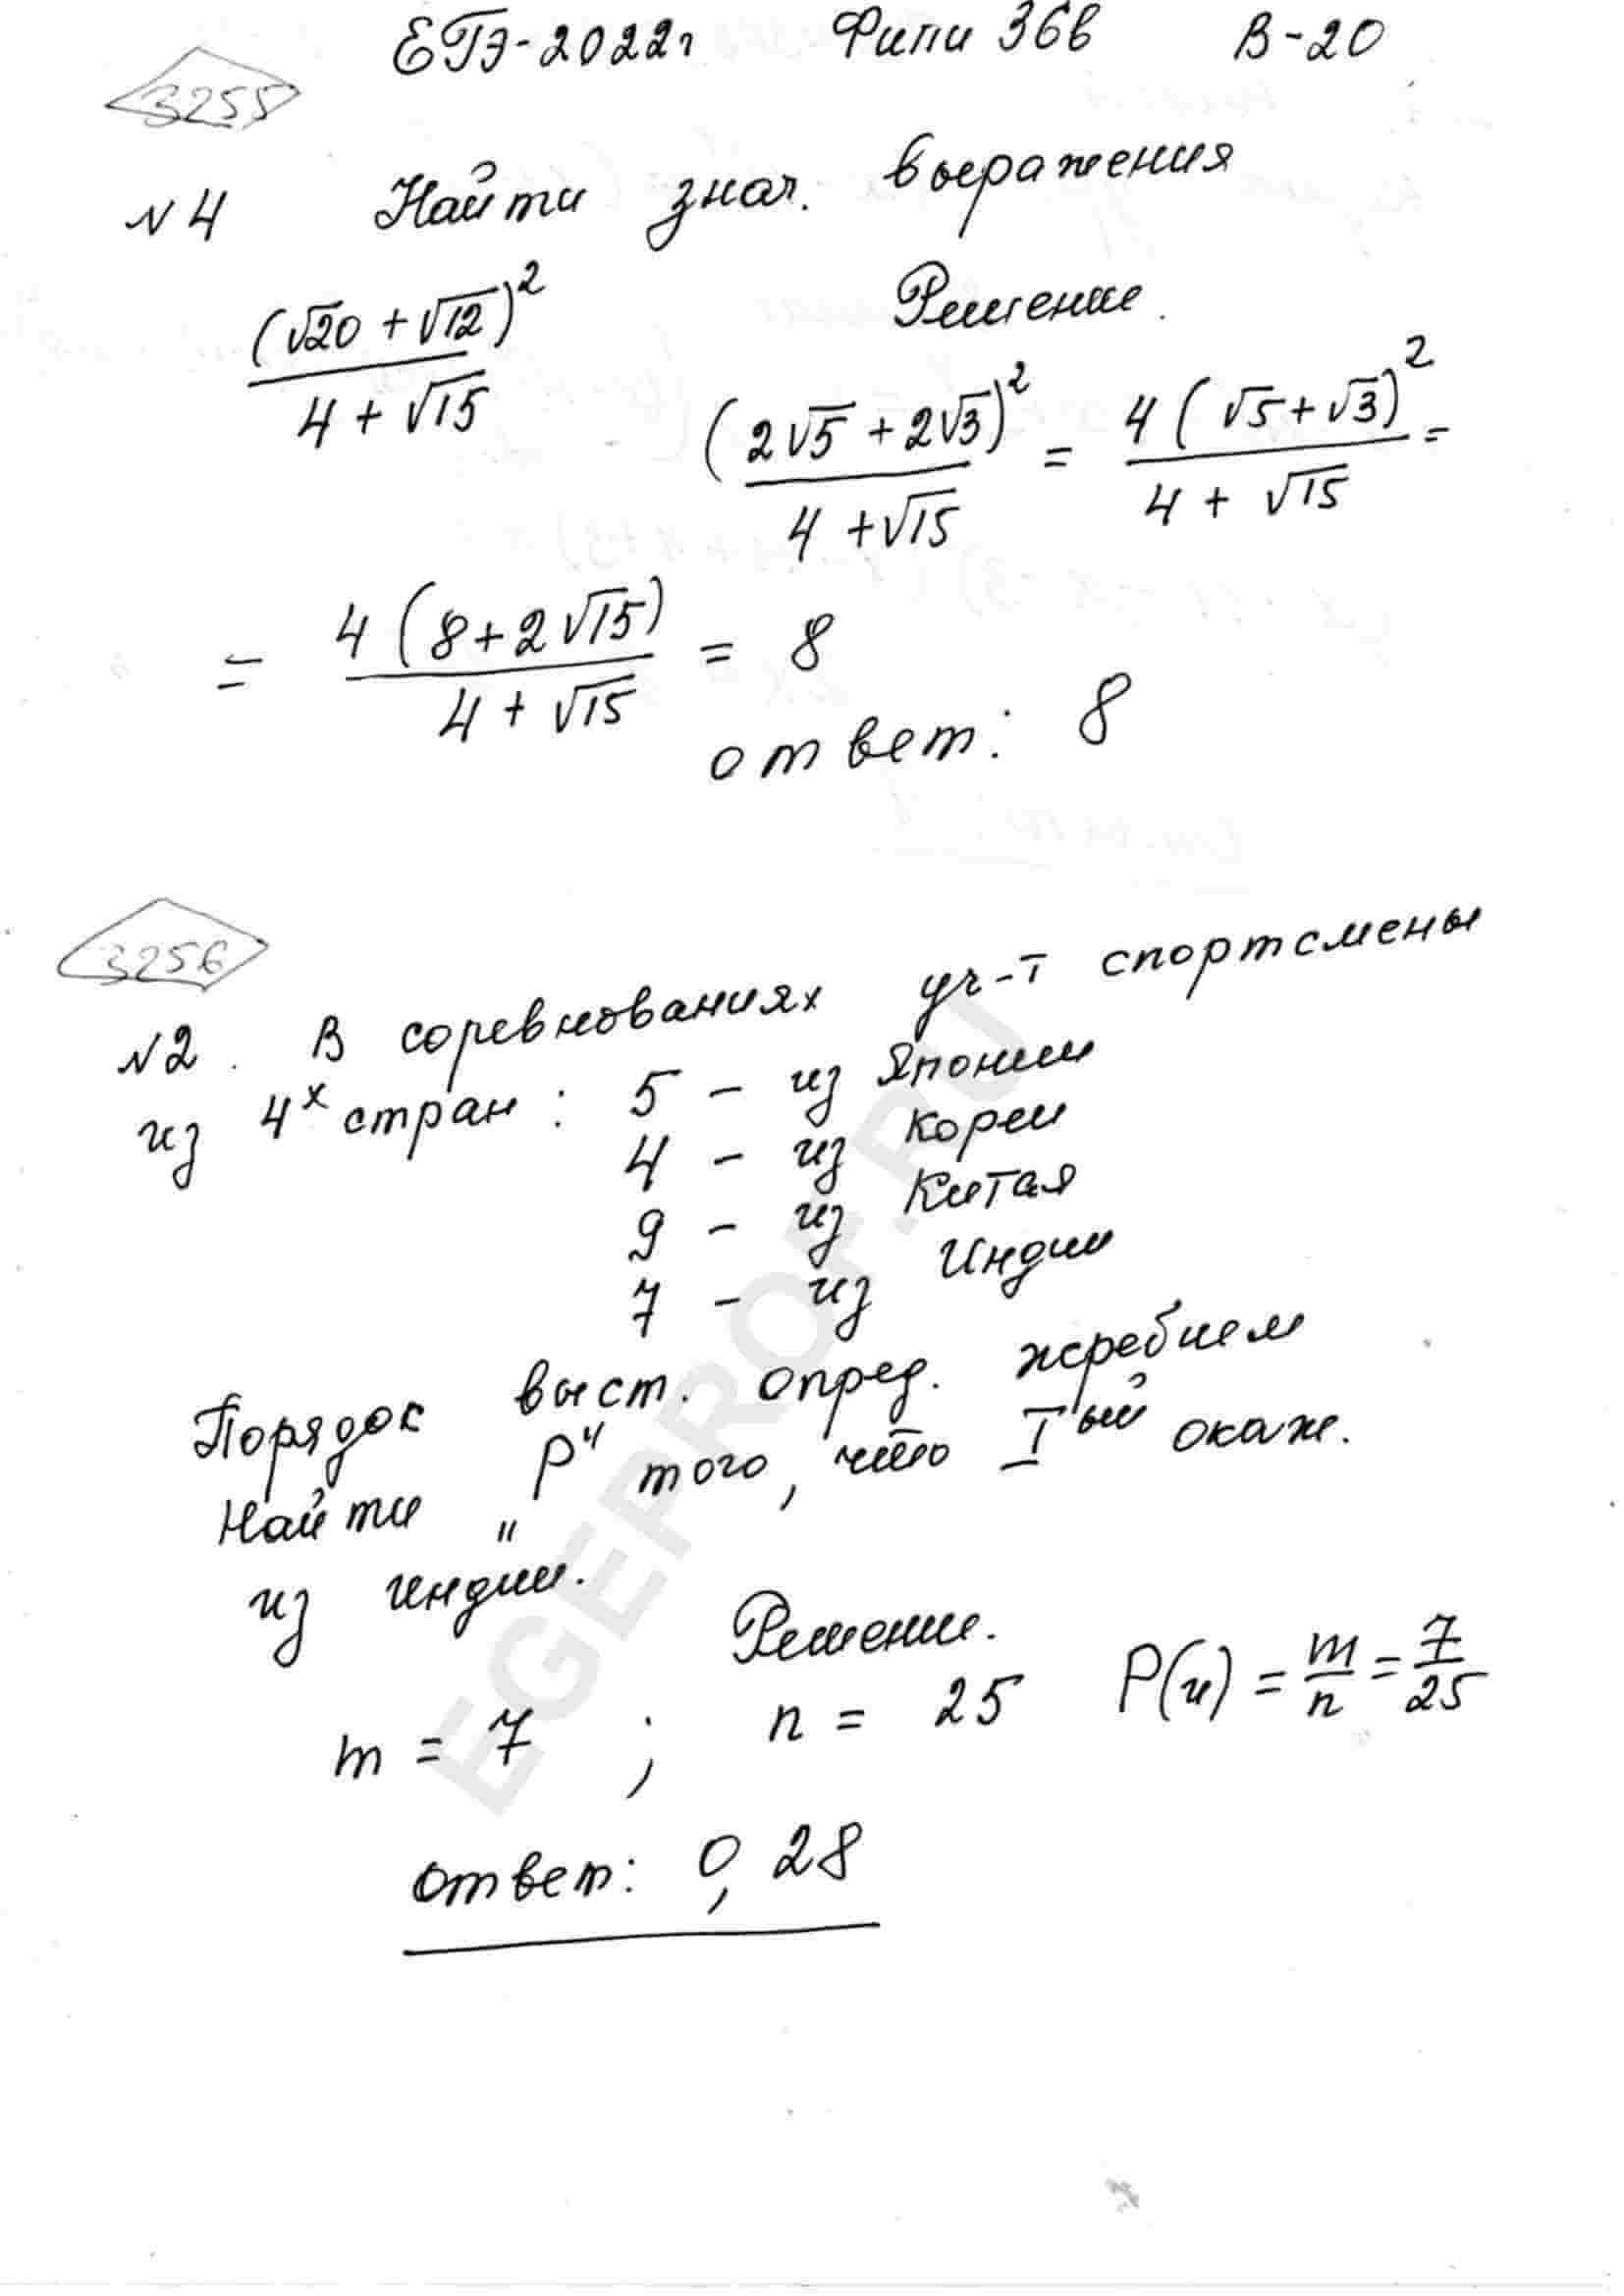 ЕГЭ-2022г Фипи 36в В-20
3255
№4 Найти знач. выражения
(√20 + √12)² / (4 + √15)
Решение.
(2√5 + 2√3)² / (4 + √15) = 4(√5 + √3)² / (4 + √15) =
= 4(8 + 2√15) / (4 + √15) = 8
ответ: 8
3256
№2. В соревнованиях уч-т спортсмены
из 4х стран: 5 - из Японии
4 - из Кореи
9 - из Китая
7 - из Индии
Порядок выст. опред. жребием
Найти "P" того, что Iый окаж.
из Индии.
Решение.
m = 7 ; n = 25 P(и) = m/n = 7/25
ответ: 0,28
EGEPROF.RU